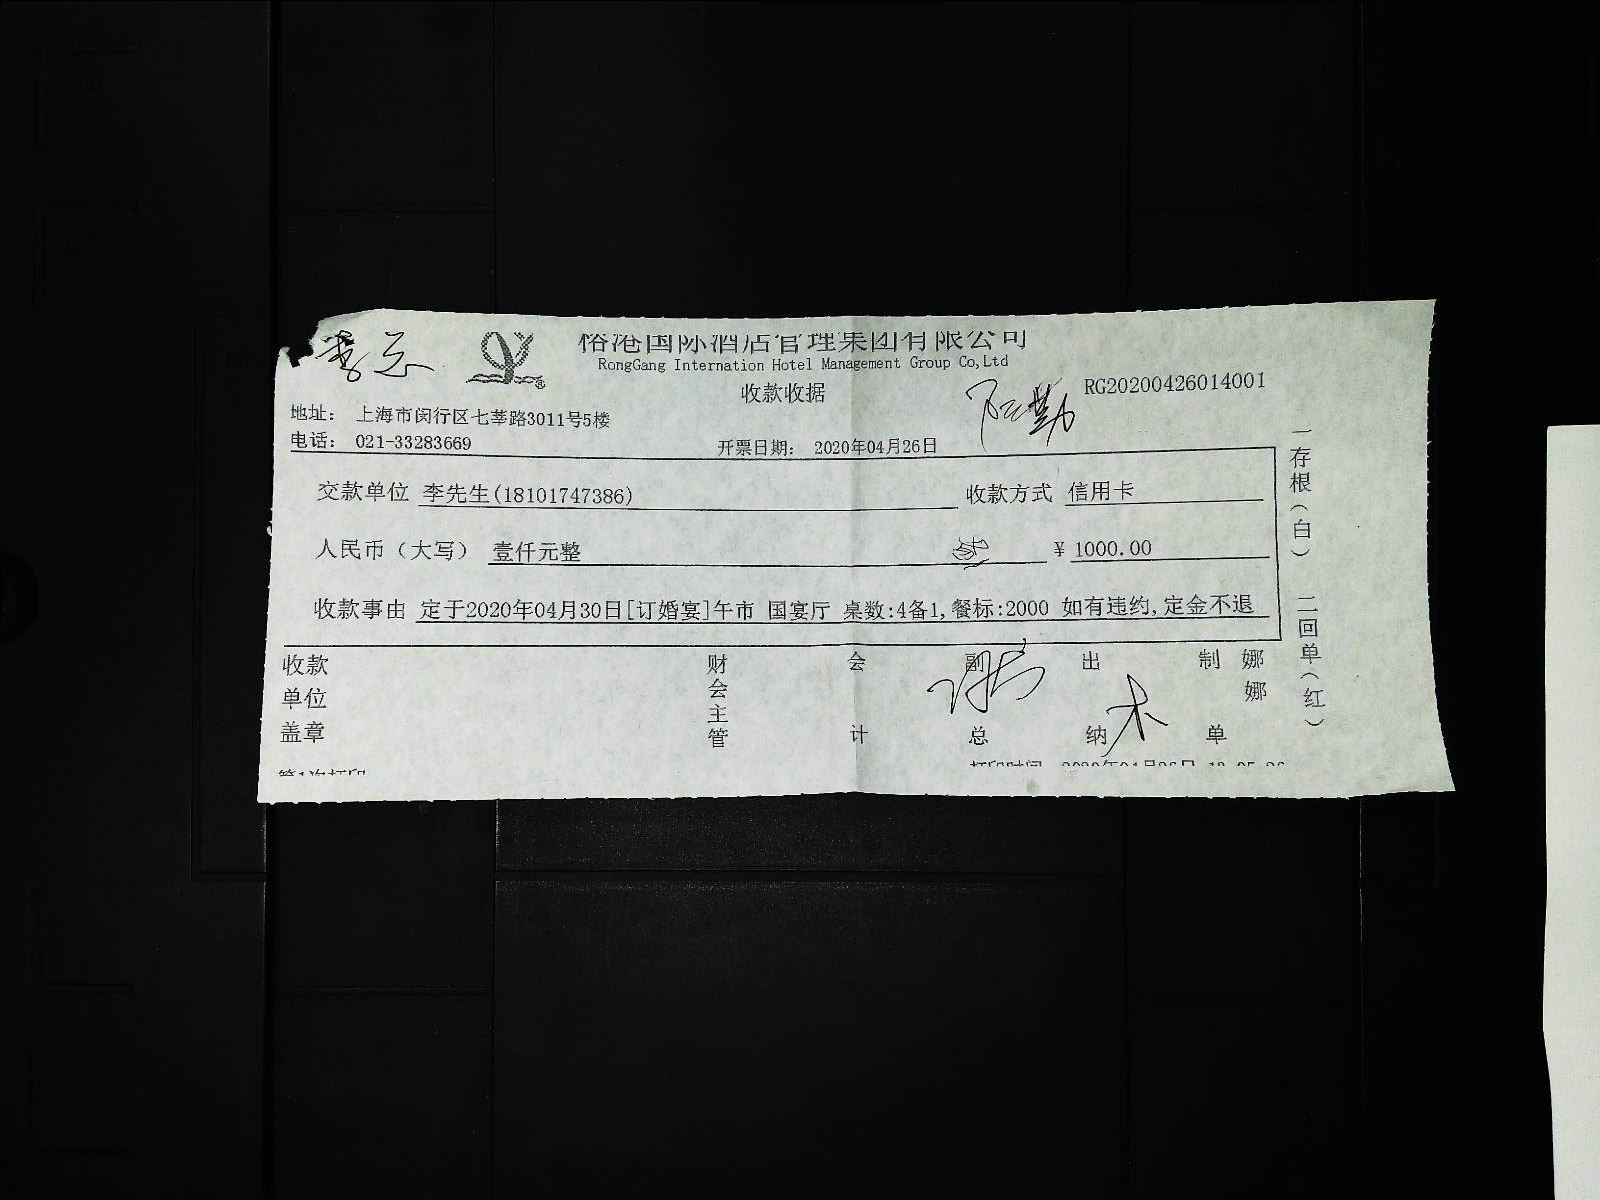 榕港国际酒店管理集团有限公司
RongGang Internation Hotel Management Group Co,Ltd
收款收据
RG20200426014001
地址： 上海市闵行区七莘路3011号5楼
电话： 021-33283669
开票日期： 2020年04月26日
交款单位 李先生(18101747386) 收款方式 信用卡
人民币（大写） 壹仟元整 ¥ 1000.00
收款事由 定于2020年04月30日[订婚宴]午市 国宴厅 桌数:4备1,餐标:2000 如有违约,定金不退
收款单位盖章 财会主管 会计 副总 出纳 制单 娜娜
一存根（白） 二回单（红）
第1次打印